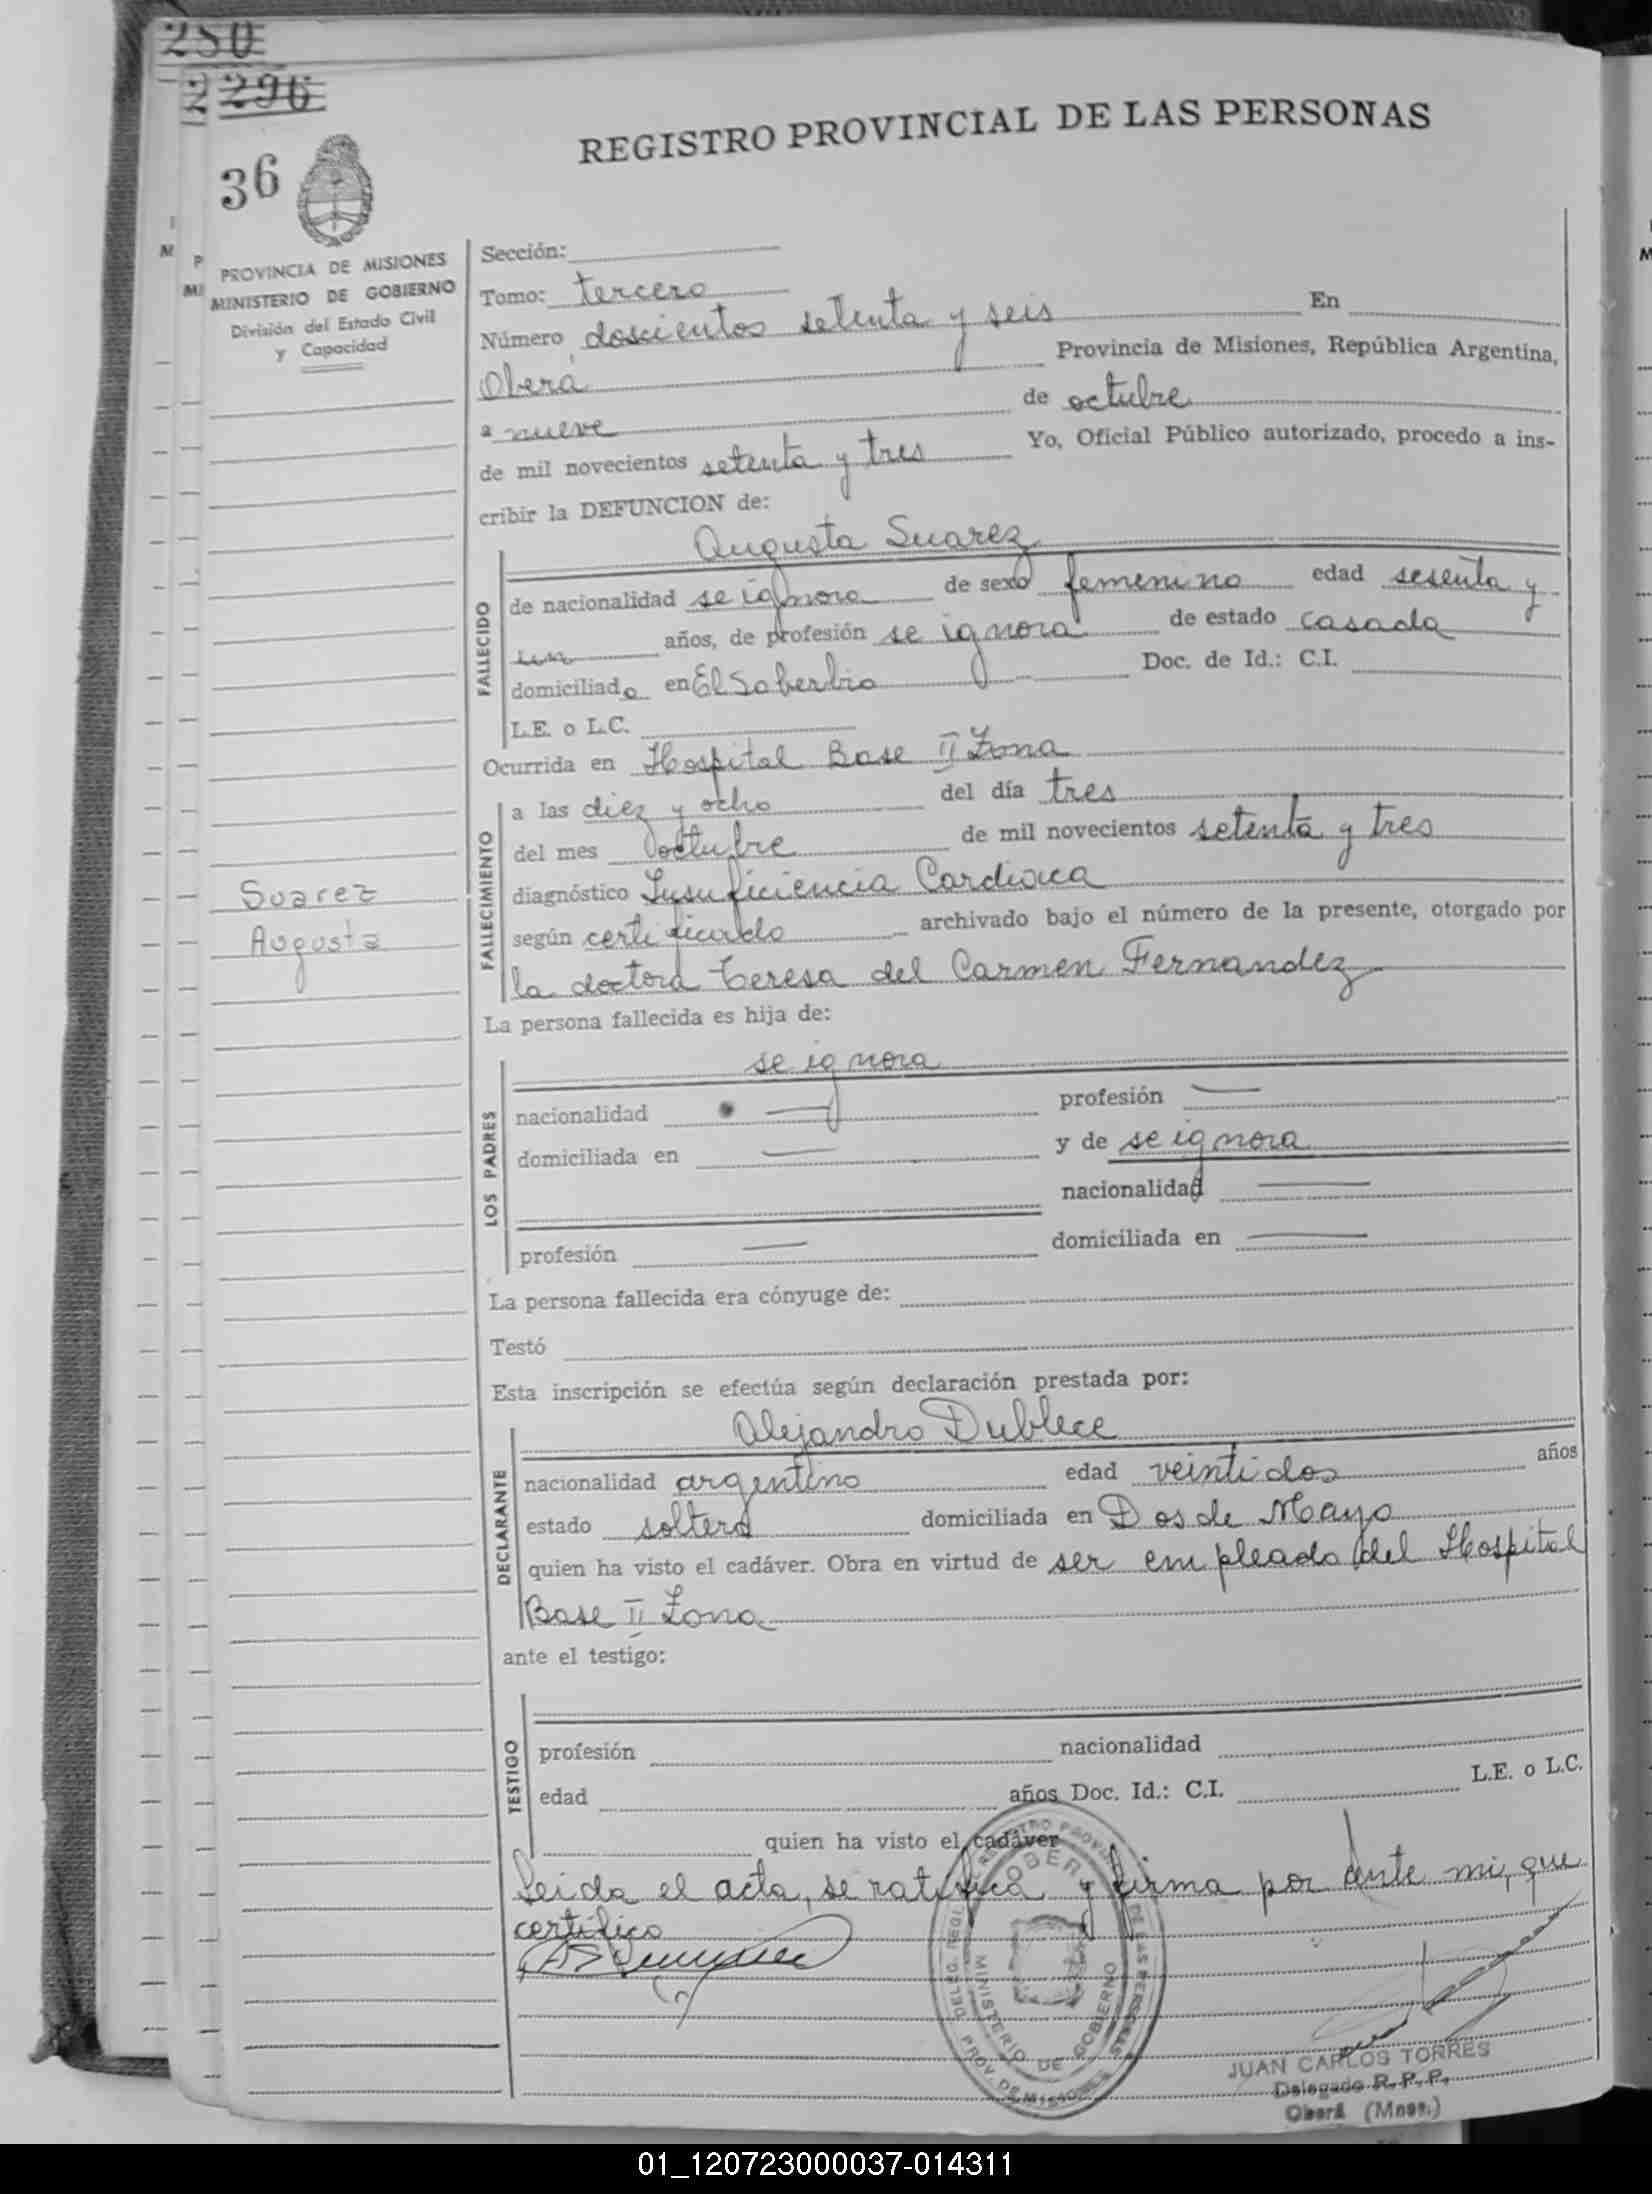 280
2 296
36
REGISTRO PROVINCIAL DE LAS PERSONAS
PROVINCIA DE MISIONES
MINISTERIO DE GOBIERNO
División del Estado Civil
y Capacidad
Suarez
Augusta
Sección:
Tomo: tercero
Número doscientos setenta y seis En
Oberá Provincia de Misiones, República Argentina,
a nueve de octubre
de mil novecientos setenta y tres Yo, Oficial Público autorizado, procedo a ins-
cribir la DEFUNCION de:
Augusta Suarez
FALLECIDO
de nacionalidad se ignora de sexo femenino edad sesenta y
un años, de profesión se ignora de estado casada
domiciliada en El Soberbio Doc. de Id.: C.I.
L.E. o L.C.
Ocurrida en Hospital Base II Zona
FALLECIMIENTO
a las diez y ocho del día tres
del mes octubre de mil novecientos setenta y tres
diagnóstico Insuficiencia Cardiaca
según certificado archivado bajo el número de la presente, otorgado por
la doctora Teresa del Carmen Fernandez
La persona fallecida es hija de:
se ignora
LOS PADRES
nacionalidad — profesión —
domiciliada en — y de se ignora
nacionalidad —
profesión — domiciliada en —
La persona fallecida era cónyuge de:
Testó
Esta inscripción se efectúa según declaración prestada por:
Alejandro Dublece
DECLARANTE
nacionalidad argentino edad veintidos años
estado soltero domiciliada en Dos de Mayo
quien ha visto el cadáver. Obra en virtud de ser empleado del Hospital
Base II Zona
ante el testigo:
TESTIGO
profesión nacionalidad
edad años Doc. Id.: C.I. L.E. o L.C.
quien ha visto el cadáver
Leida el acta, se ratifica y firma por ante mi, que
certifico
MINISTERIO DE GOBIERNO
PROV. DE MISIONES
JUAN CARLOS TORRES
Delegado R. P. P.
Oberá (Mnes.)
01_120723000037-014311